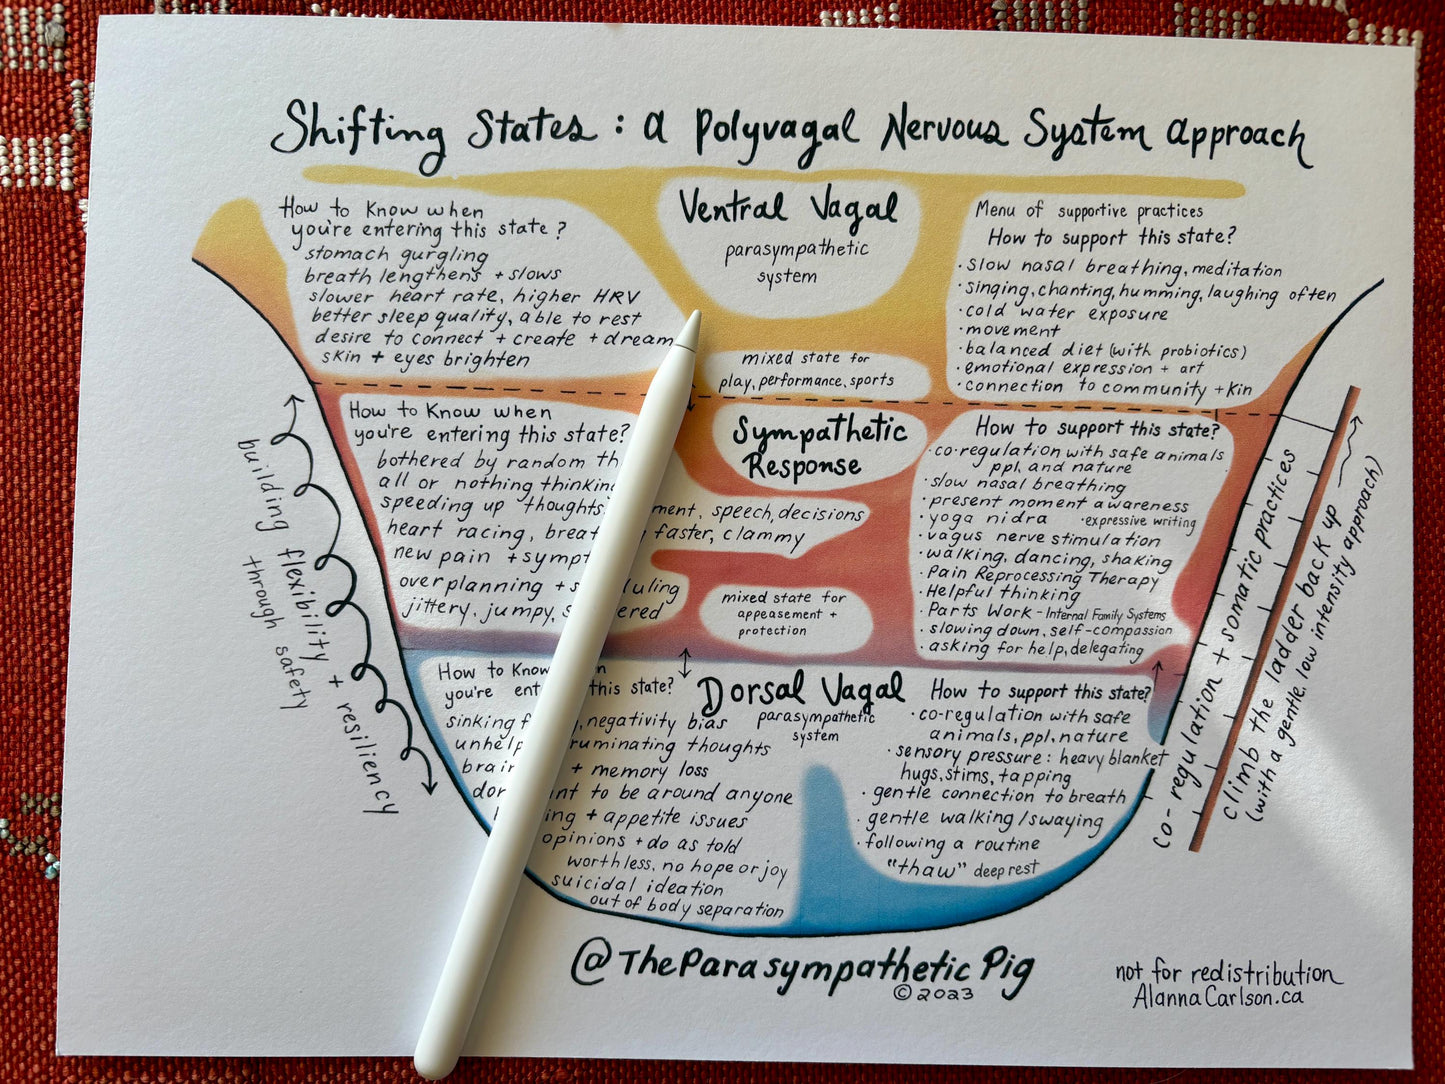 Shifting States : a Polyvagal Nervous System Approach
How to Know when
you're entering this state?
stomach gurgling
breath lengthens + slows
slower heart rate, higher HRV
better sleep quality, able to rest
desire to connect + create + dream
skin + eyes brighten
Ventral Vagal
parasympathetic
system
mixed state for
play, performance, sports
Menu of supportive practices
How to support this state?
· slow nasal breathing, meditation
· singing, chanting, humming, laughing often
· cold water exposure
· movement
· balanced diet (with probiotics)
· emotional expression + art
· connection to community + kin
How to Know when
you're entering this state?
bothered by random
all or nothing
speeding up thoughts, speech, decisions
heart racing, faster, clammy
new pain +
overplanning +
jittery, jumpy,
Sympathetic
Response
mixed state for
appeasement +
protection
How to support this state?
· co-regulation with safe animals
ppl, and nature
· slow nasal breathing
· present moment awareness
· yoga nidra · expressive writing
· vagus nerve stimulation
· walking, dancing, shaking
· Pain Reprocessing Therapy
· Helpful thinking
· Parts Work - Internal Family Systems
· slowing down, self-compassion
· asking for help, delegating
How to Know
you're this state?
sinking negativity bias
ruminating thoughts
+ memory loss
to be around anyone
+ appetite issues
opinions + do as told
worthless, no hope or joy
suicidal ideation
out of body separation
Dorsal Vagal
parasympathetic
system
How to support this state?
· co-regulation with safe
animals, ppl, nature
· sensory pressure : heavy blanket
hugs, stims, tapping
· gentle connection to breath
· gentle walking / swaying
· following a routine
"thaw" deep rest
building flexibility + resiliency
through safety
co-regulation + somatic practices
climb the ladder back up
(with a gentle, low intensity approach)
@TheParasympatheticPig
© 2023
not for redistribution
AlannaCarlson.ca